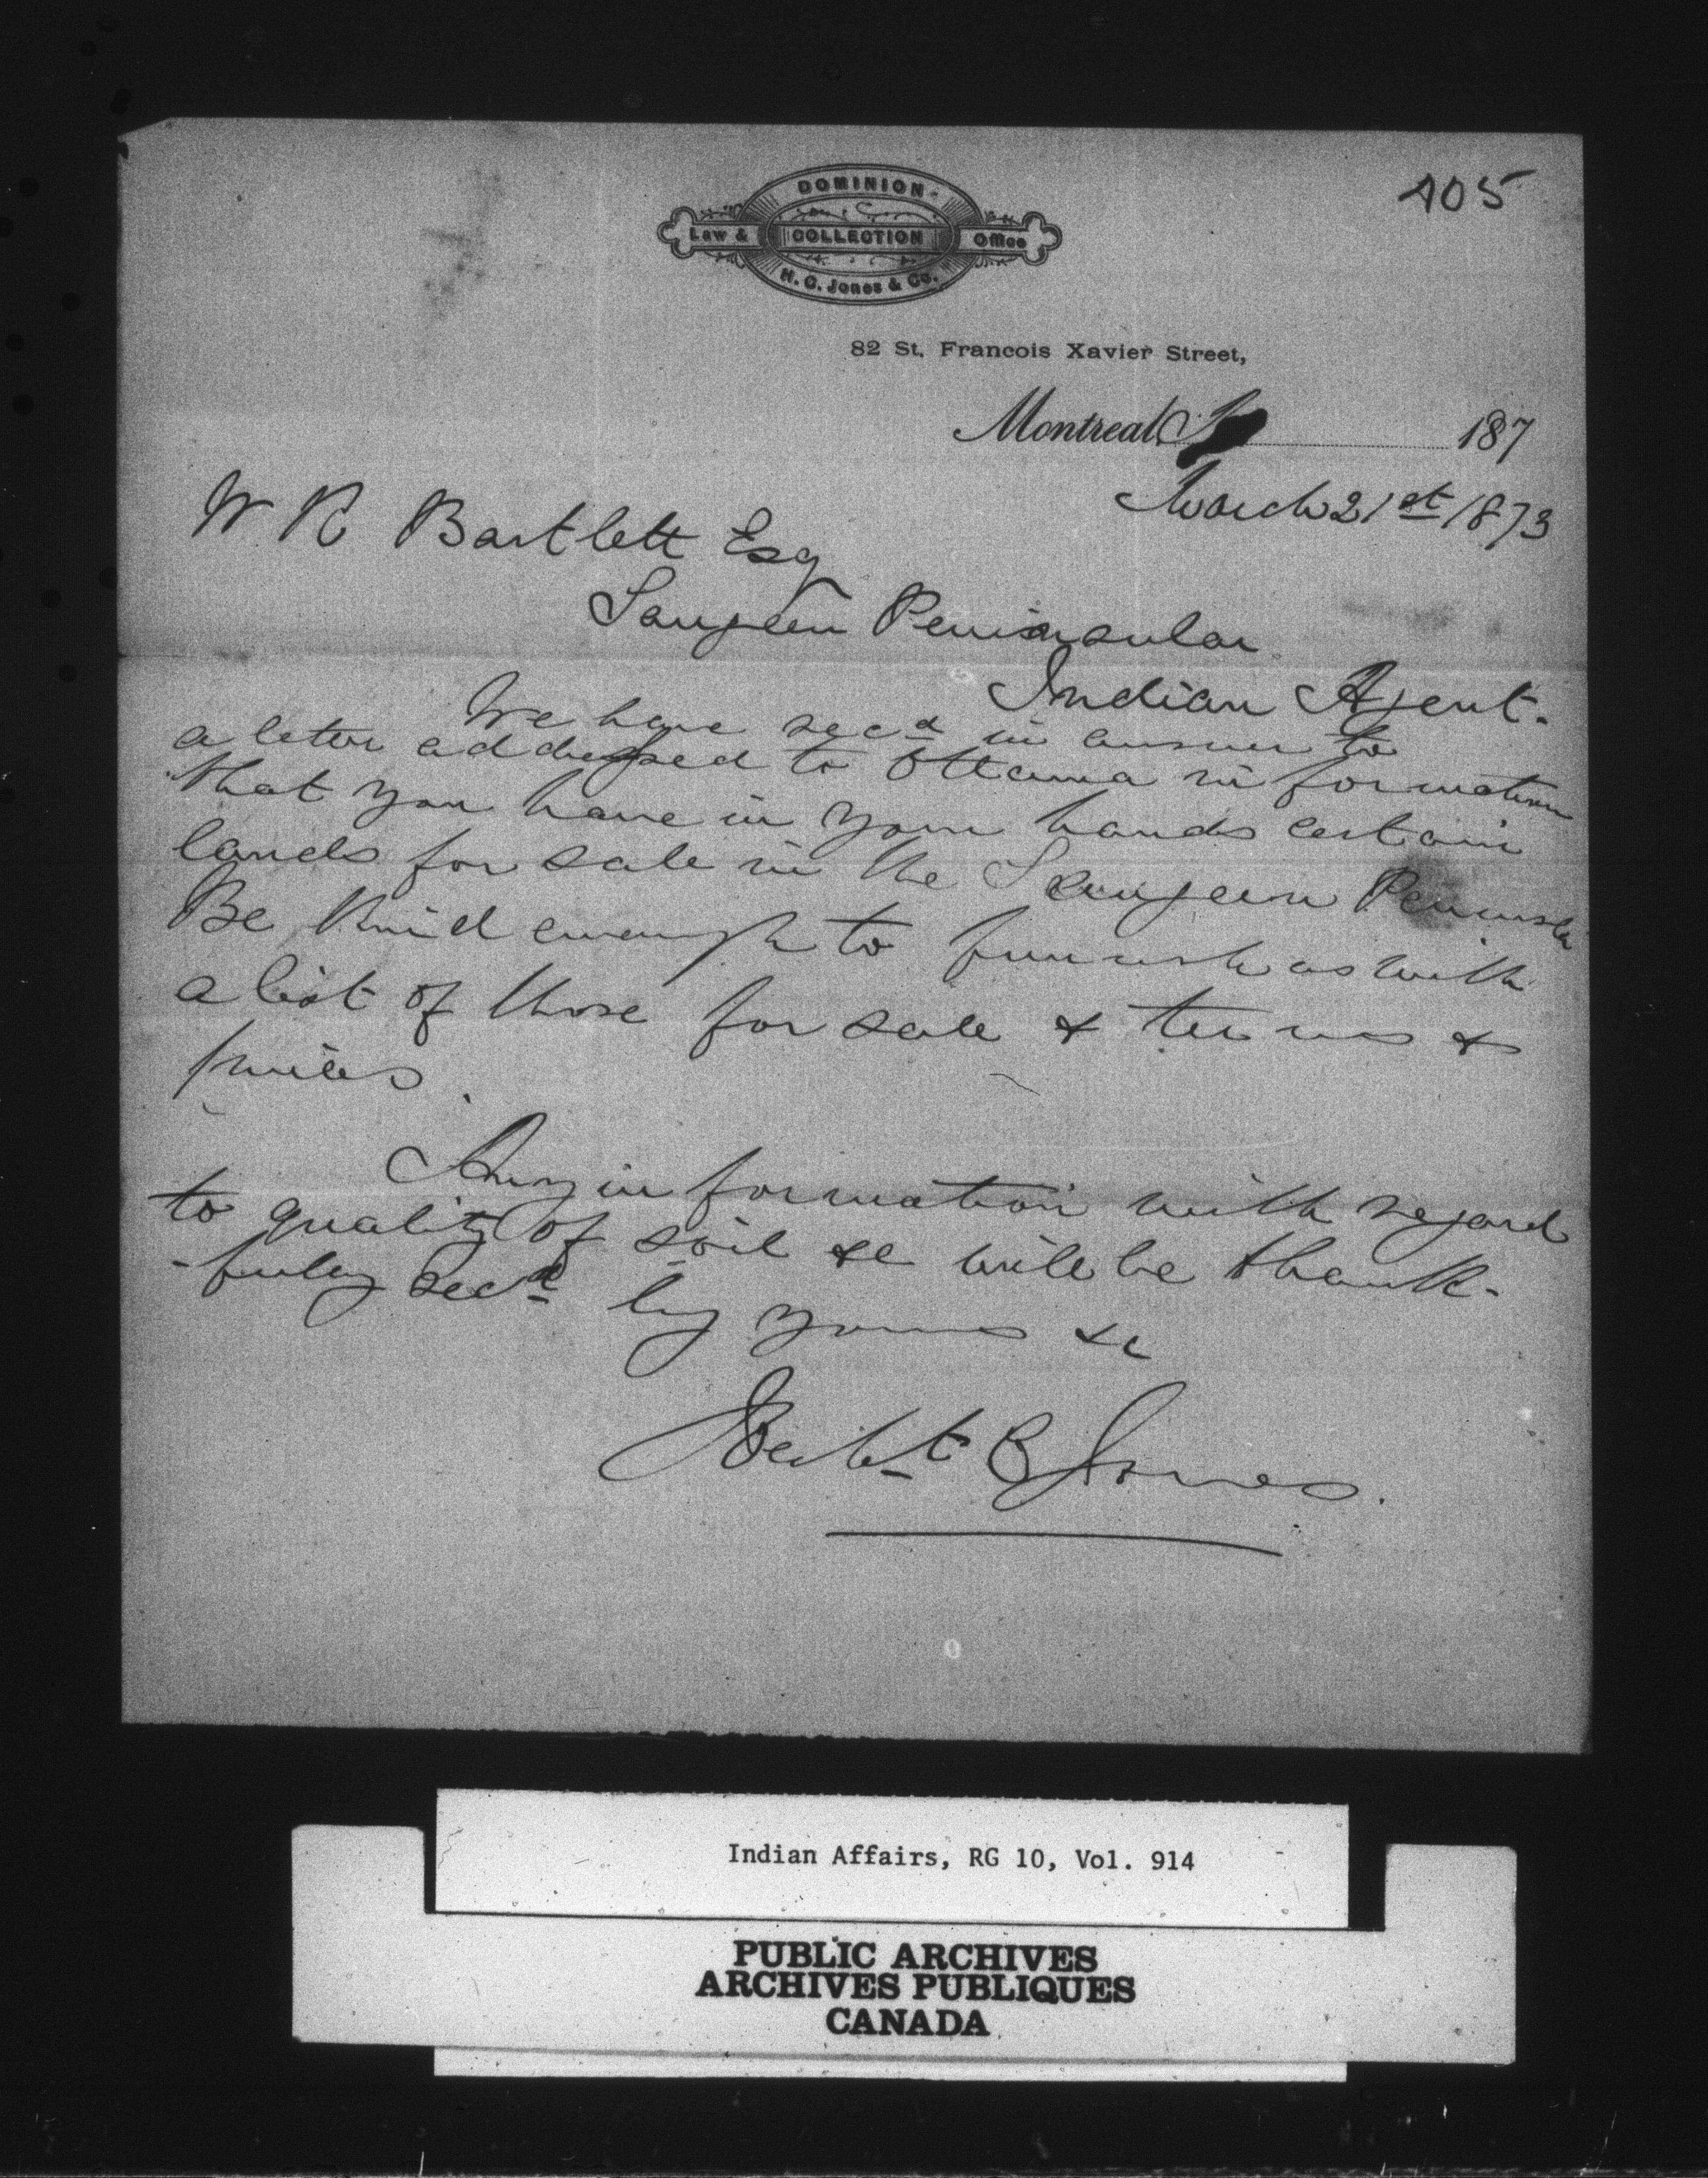 405
DOMINION
Law & COLLECTION Office
H. C. Jones & Co.
82 St. Francois Xavier Street,
Montreal 187
March 21st 1873
W R Bartlett Esq
Saugeen Peninsular
Indian Agent.
We have recd in answer to
a letter addressed to Ottawa information
that you have in your hands certain
lands for sale in the Saugeen Peninsula
Be kind enough to furnish us with
a list of those for sale & terms &
prices.
Any information with regard
to quality of soil &c will be thank-
-fully Recd by yours &c
Herbt C Jones.
Indian Affairs, RG 10, Vol. 914
PUBLIC ARCHIVES
ARCHIVES PUBLIQUES
CANADA